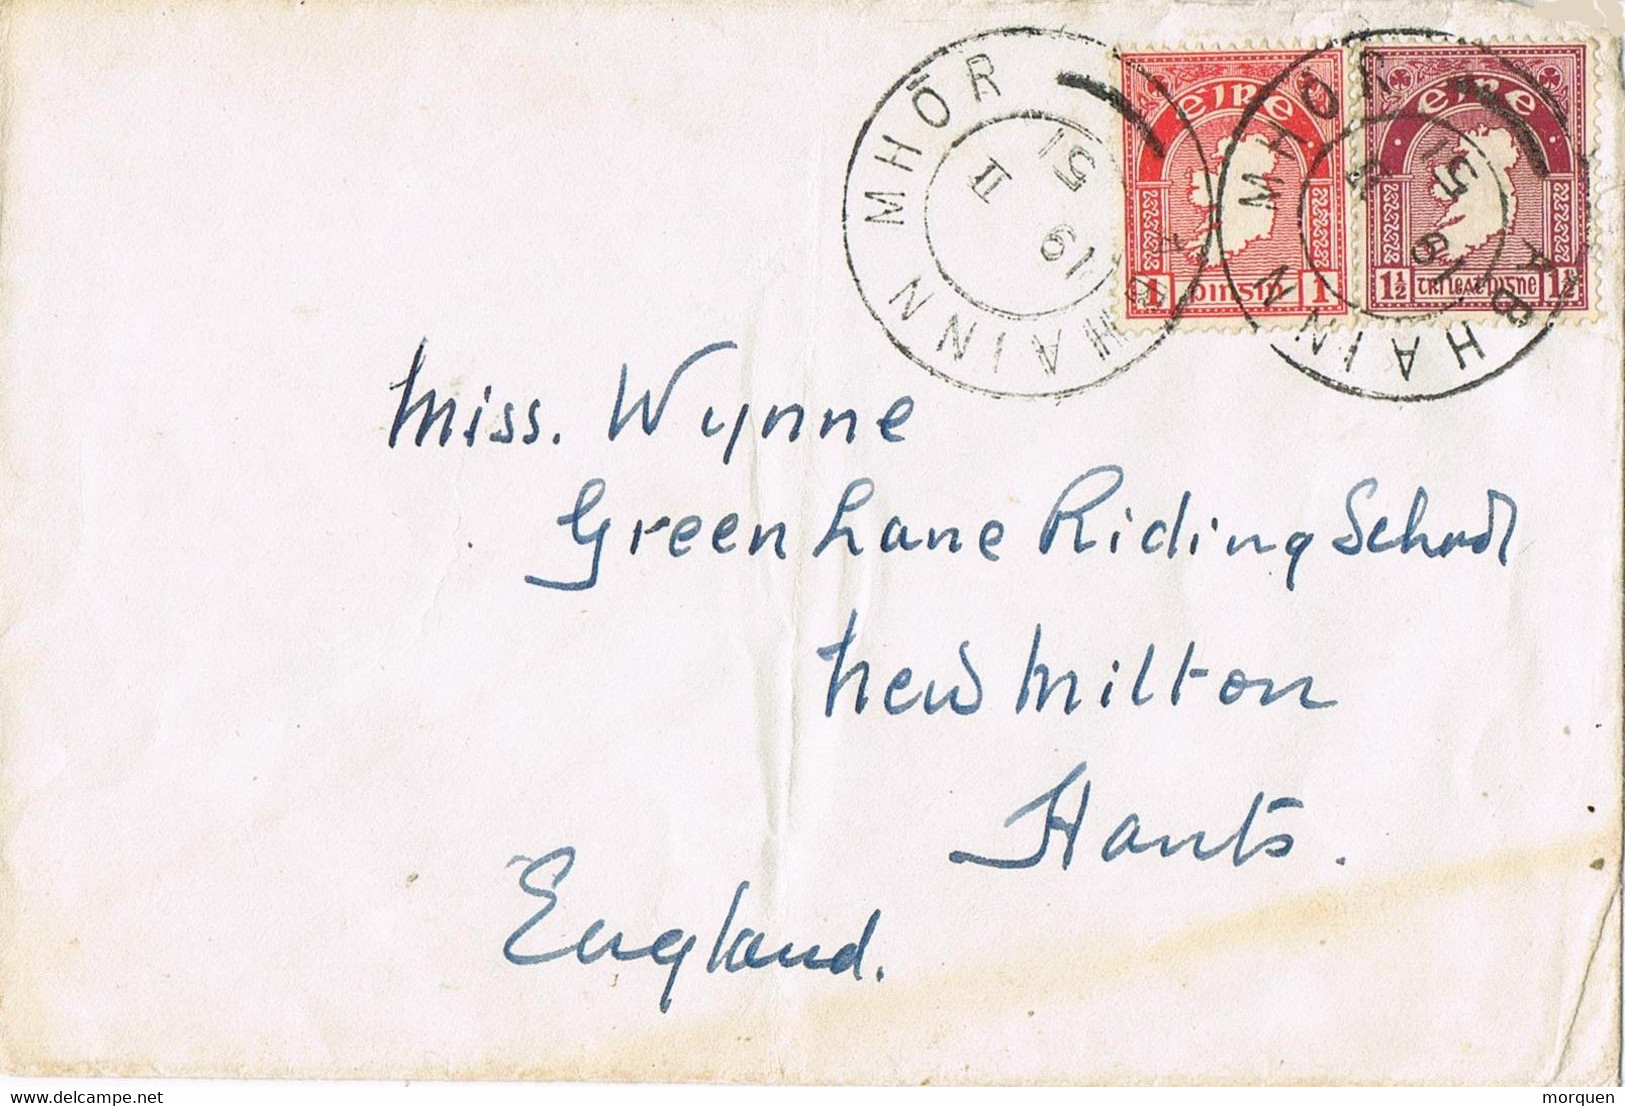 EIRE
1 pinsin 1
EIRE
1½ trí leatpinsne 1½
ABHAINN MHÓR
19 II 51
ABHAINN MHÓR
19 51
Miss. Wynne
Green Lane Riding School
New Milton
Hants.
England.
delcampe.net
morquen